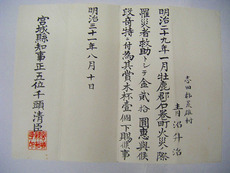 志田郡荒雄村
青沼伴治
明治二十九年一月牡鹿郡石巻町火災ノ際
罹災者救助トシテ金貳拾圓恵與候
段奇特ニ付為其賞木杯壹個下賜候事
明治三十一年八月十日
宮城縣知事正五位千頭清臣